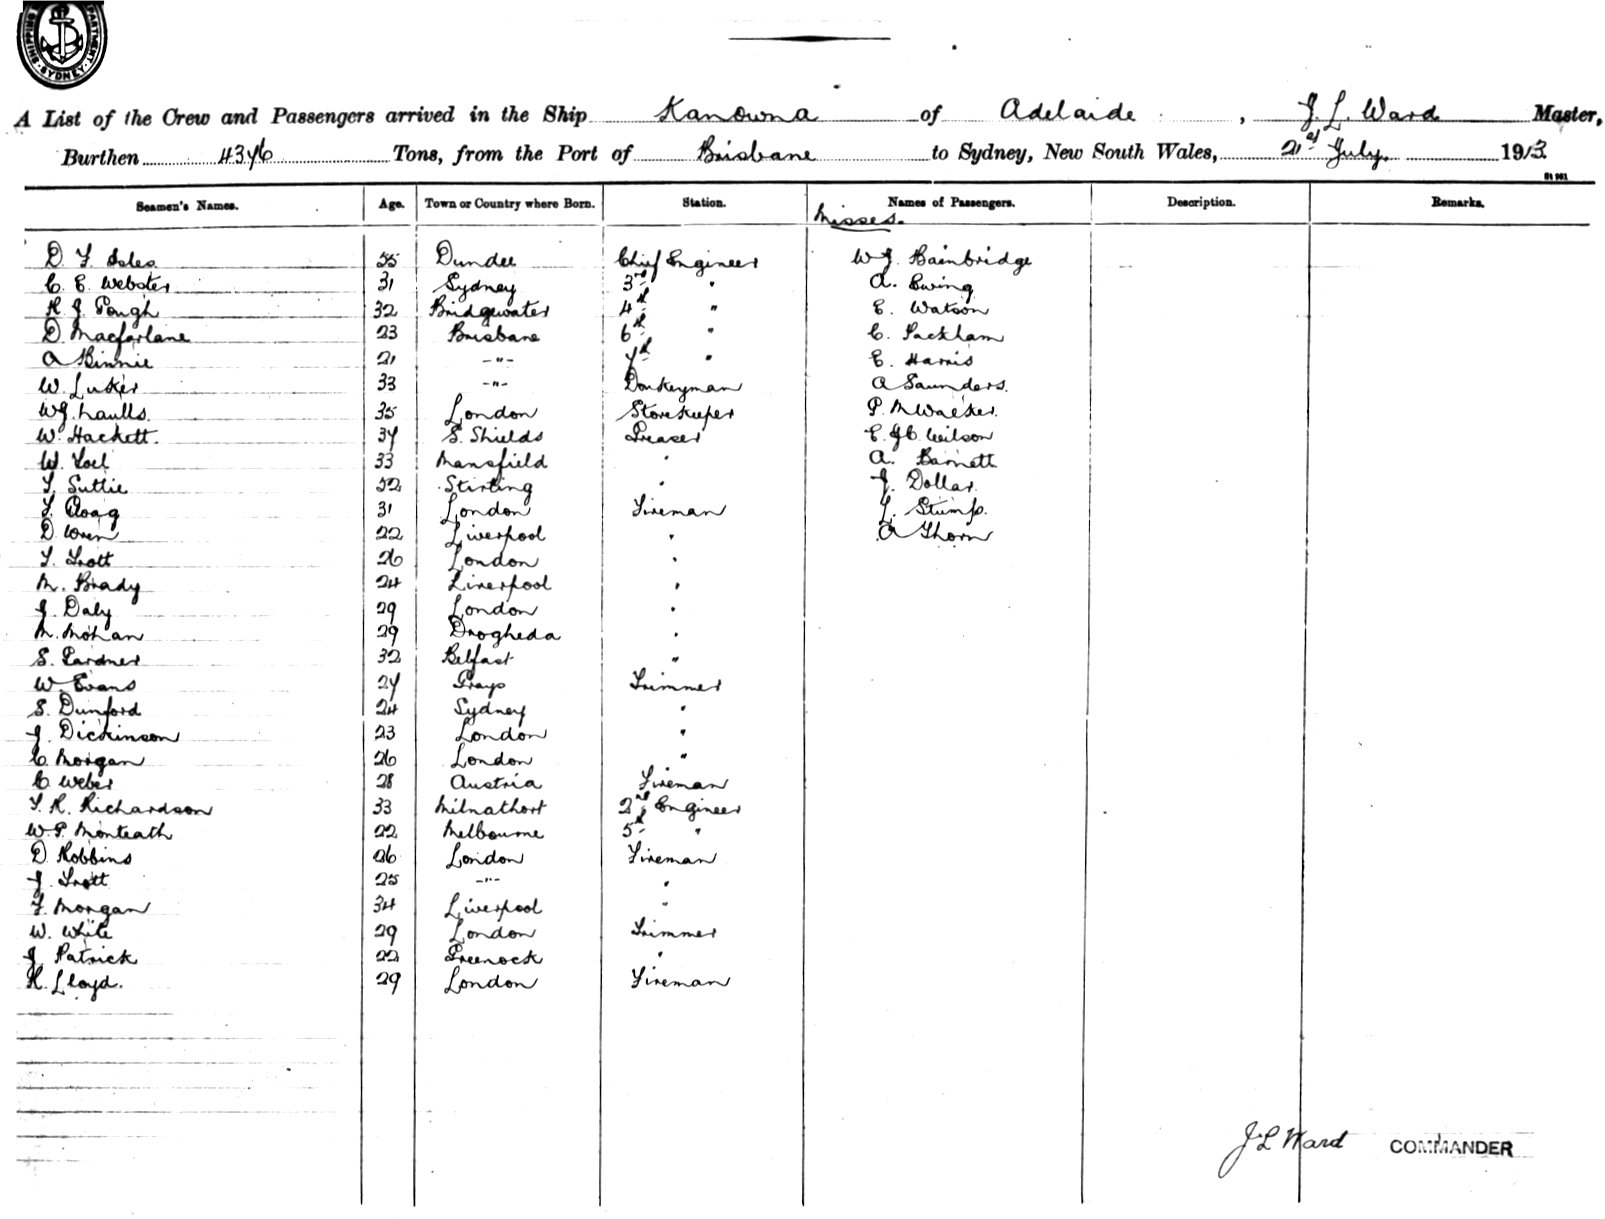 SHIPPING DEPARTMENT SYDNEY
A List of the Crew and Passengers arrived in the Ship Kanowna of Adelaide, J. L. Ward Master,
Burthen 4376 Tons, from the Port of Brisbane to Sydney, New South Wales, 21st July. 1913
Seamen's Names. Age. Town or Country where Born. Station. Names of Passengers. Description. Remarks.
Misses.
D. F. Isles 55 Dundee Chief Engineer W J. Bainbridge
C. E. Webster 31 Sydney 3rd " A. Ewing
R. J. Gough 32 Bridgewater 4th " E. Watson
D. Macfarlane 23 Brisbane 6th " C. Packham
A Binnie 21 -"- 7th " E. Harris
W. Luker 33 -"- Donkeyman A Saunders.
W J. Laulls. 35 London Storekeeper P. M Walker.
W. Hackett. 37 S. Shields Greaser E. J C. Wilson
W. 33 Mansfield " A. Barnett
T. Suttie 52 Stirling " J. Dollar.
31 London Fireman J. Stump.
D. Wren 22 Liverpool " A Thorn
T. Trott 26 London "
M. Brady 24 Liverpool "
J. Daly 29 London "
M. Mohan 29 Drogheda "
S. Gardner 32 Belfast "
W. Evans 27 Grays Trimmer
S. Dunford 24 Sydney "
J. Dickinson 23 London "
C. Morgan 26 London "
C Weber 28 Austria Fireman
T. R. Richardson 33 Milnathort 2nd Engineer
W. P. Monteath 22 Melbourne 5th "
D. Robbins 26 London Fireman
J. Trott 25 -"- "
F. Morgan 34 Liverpool "
W. White 29 London Trimmer
J Patrick 22 Greenock "
R. Lloyd. 29 London Fireman
J L Ward COMMANDER